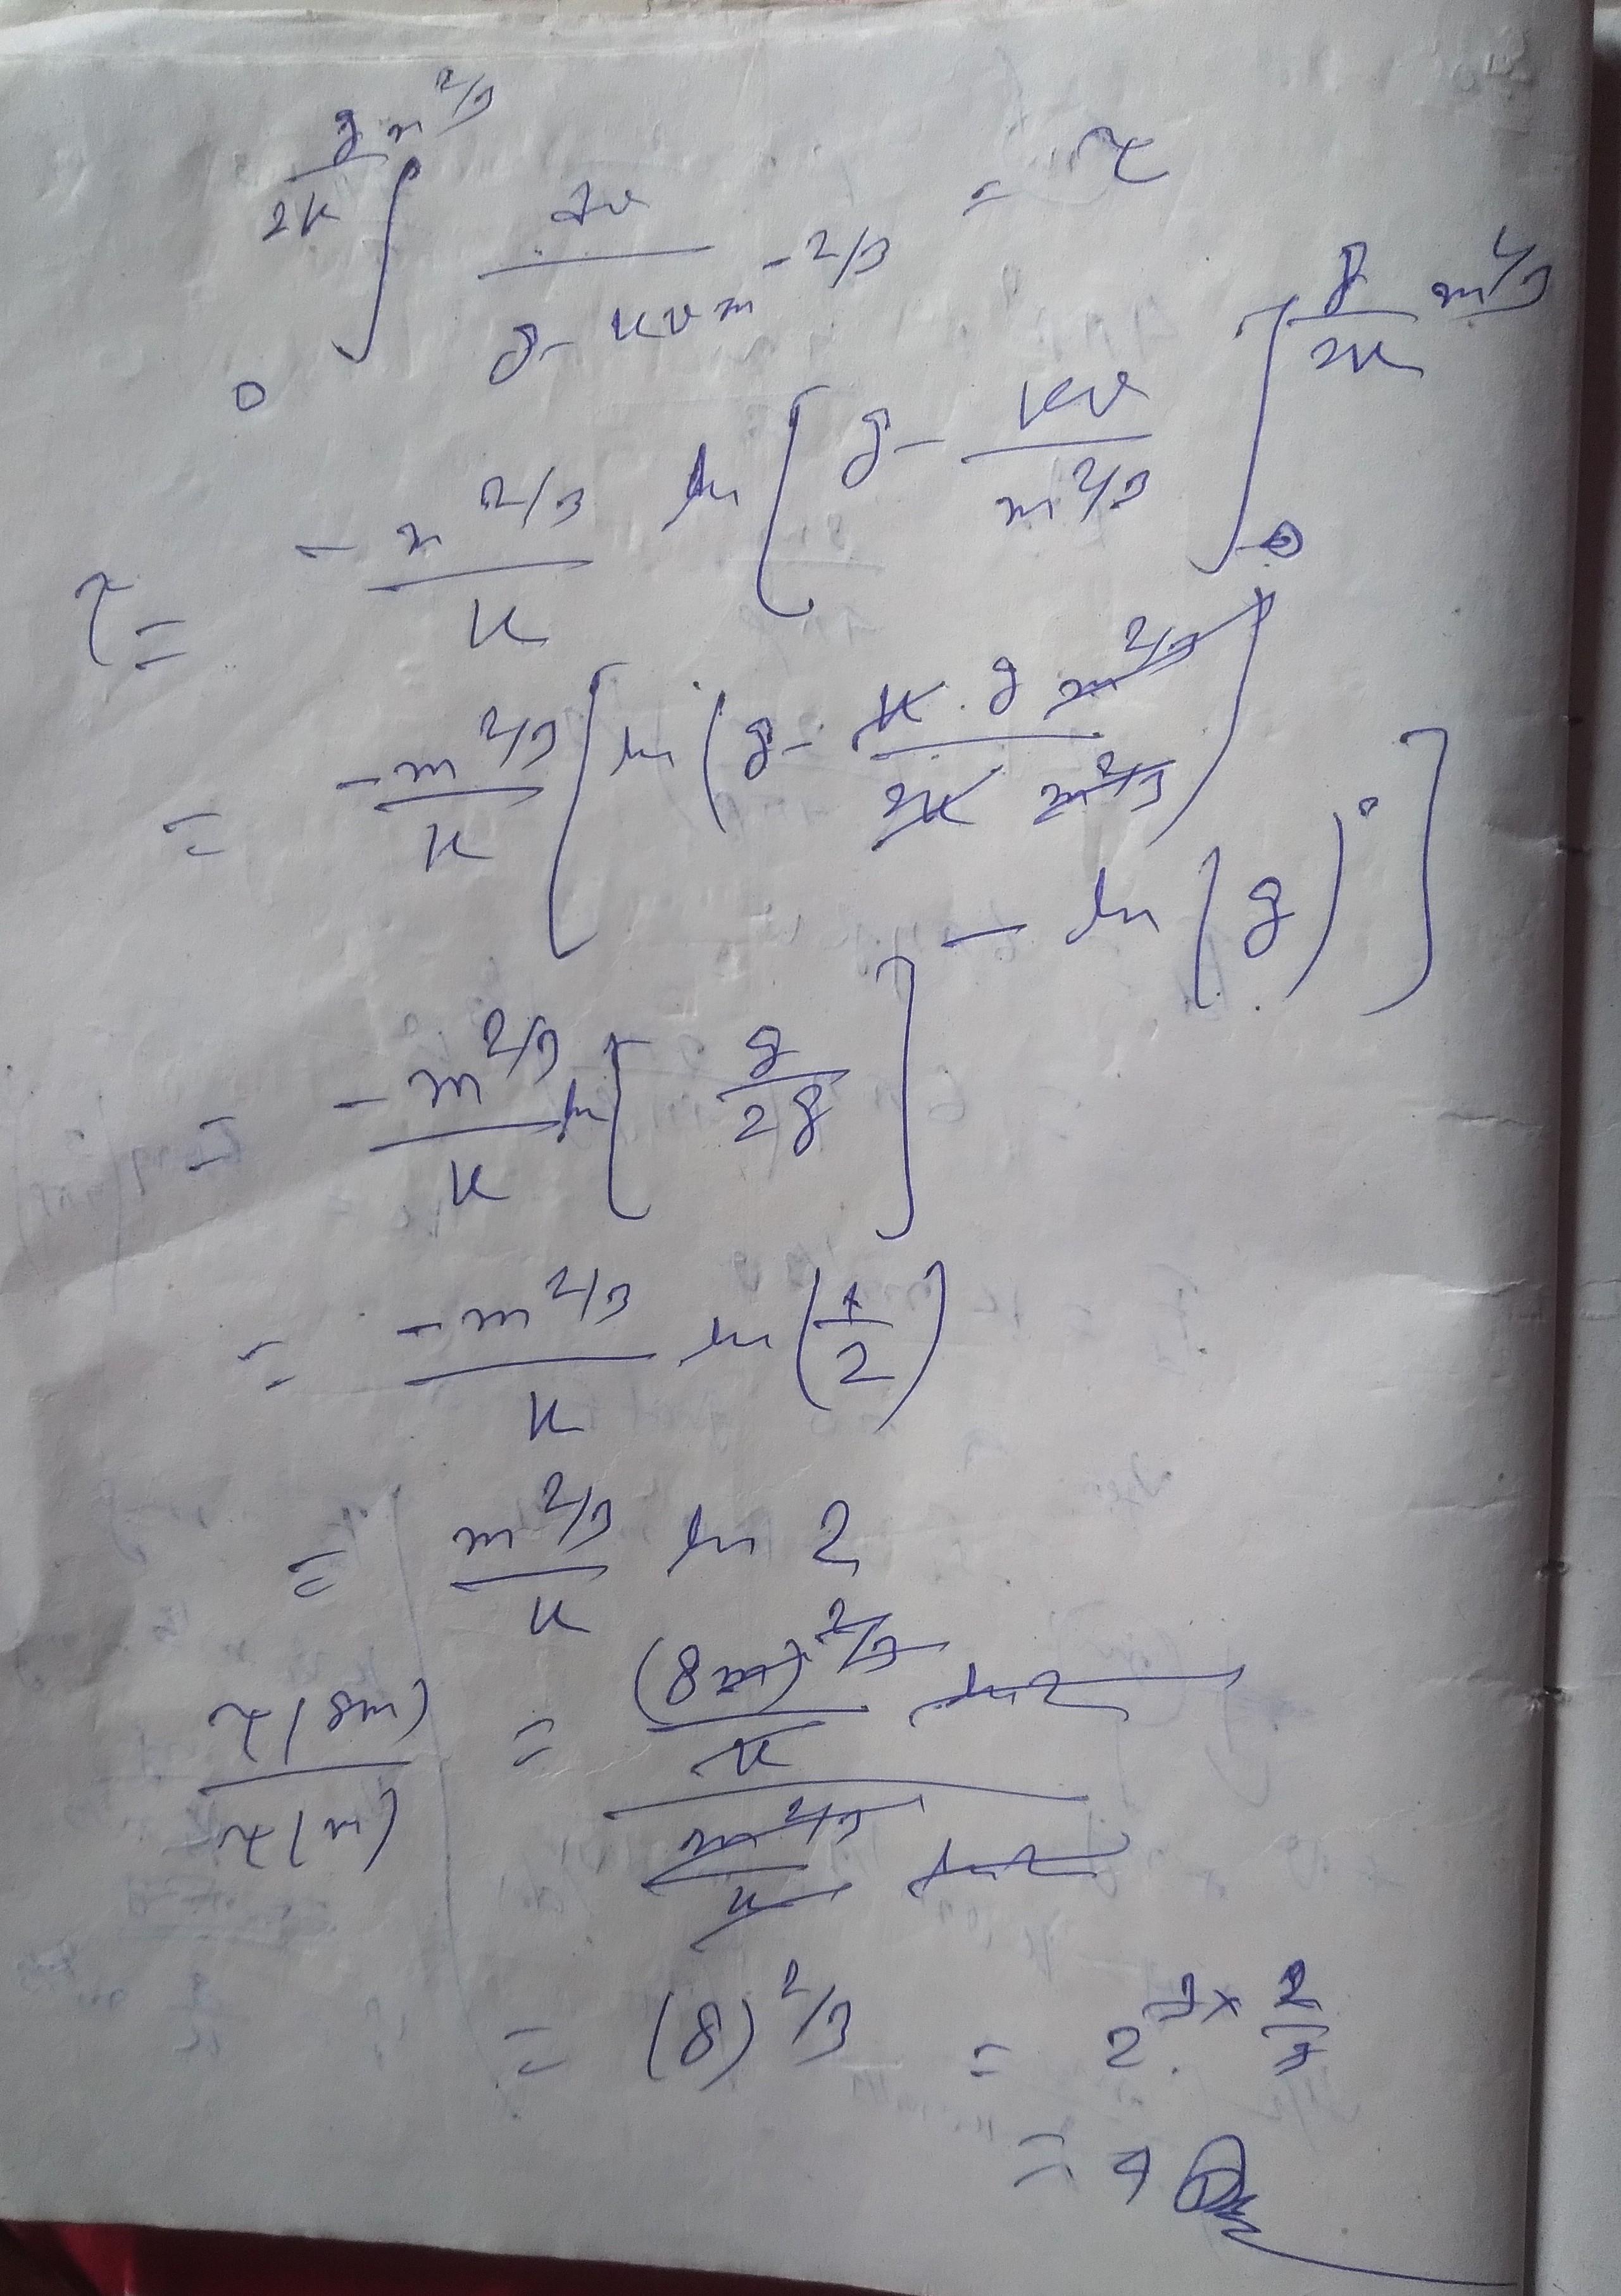 ∫₀^{(g/2K) m^{2/3}} dv / (g - Kv m^{-2/3}) = τ
τ = -m^{2/3}/K ln [ g - Kv/m^{2/3} ]₀^{(g/2K) m^{2/3}}
= -m^{2/3}/K [ ln ( g - K·g m^{2/3} / 2K m^{2/3} ) - ln (g) ]
= -m^{2/3}/K ln [ g/2g ]
= -m^{2/3}/K ln (1/2)
= m^{2/3}/K ln 2
τ(8m)/τ(m) = ( (8m)^{2/3}/K ln 2 ) / ( m^{2/3}/K ln 2 )
= (8)^{2/3} = 2^{3 × 2/3}
= 4